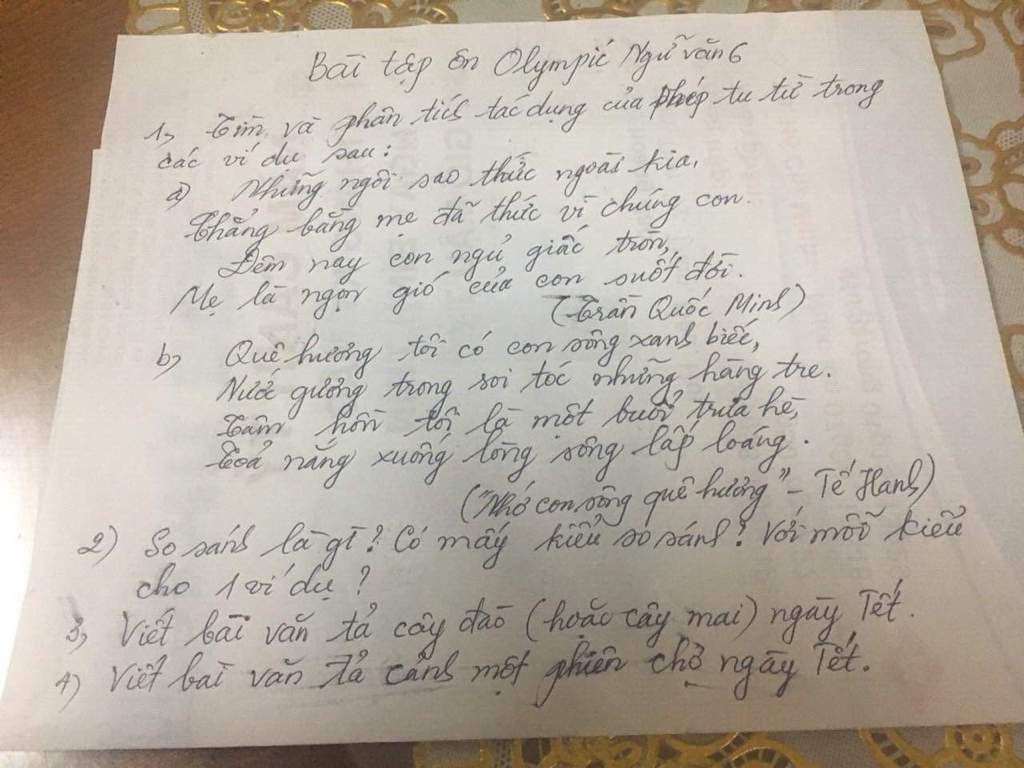 Bài tập ôn Olympic Ngữ văn 6
1, Tìm và phân tích tác dụng của phép tu từ trong
các ví dụ sau:
a) Những ngôi sao thức ngoài kia,
Chẳng bằng mẹ đã thức vì chúng con.
Đêm nay con ngủ giấc tròn,
Mẹ là ngọn gió của con suốt đời.
(Trần Quốc Minh)
b, Quê hương tôi có con sông xanh biếc,
Nước gương trong soi tóc những hàng tre.
Tâm hồn tôi là một buổi trưa hè,
Toả nắng xuống lòng sông lấp loáng.
("Nhớ con sông quê hương" - Tế Hanh)
2) So sánh là gì? Có mấy kiểu so sánh? Với mỗi kiểu
cho 1 ví dụ?
3, Viết bài văn tả cây đào (hoặc cây mai) ngày Tết.
4) Viết bài văn tả cảnh một phiên chợ ngày Tết.